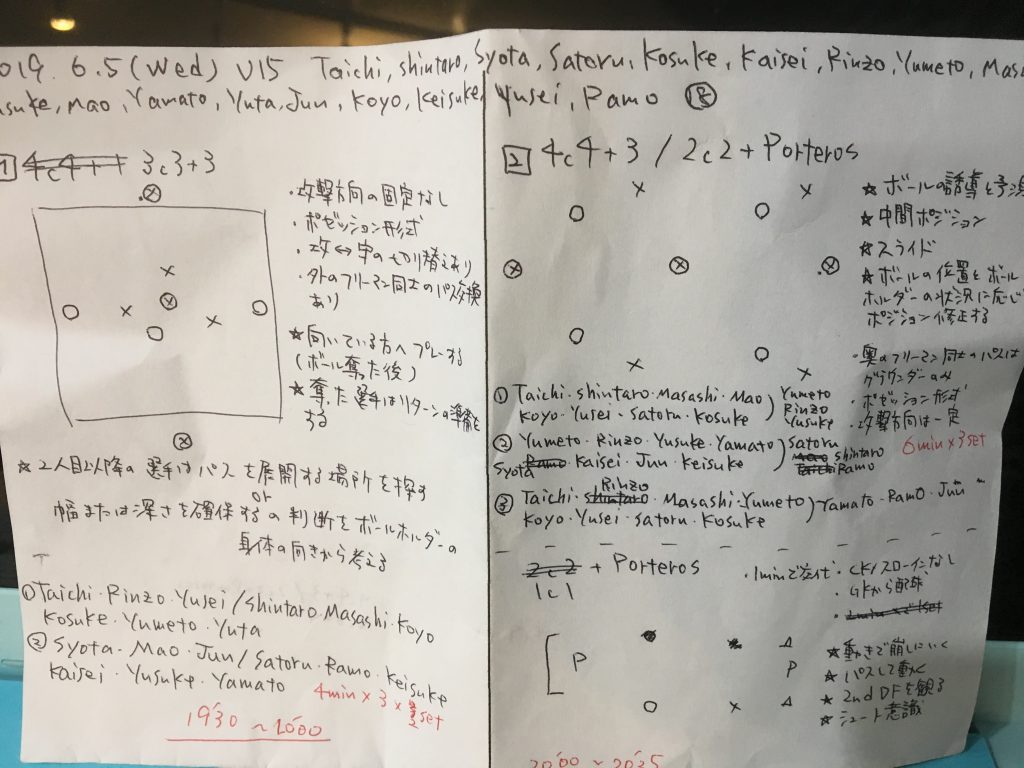 019. 6.5 (Wed) U15 Taichi, shintaro, Syota, Satoru, Kosuke, Kaisei, Rinzo, Yumeto, Mas
suke, Mao, Yamato, Yuta, Jun, Koyo, Keisuke, Yusei, Ramo ⑱
1 4c4+1 3c3+3
・攻撃方向の固定なし
・ポゼッション形式
・攻↔守の切り替えあり
・外のフリーマン同士のパス交換
あり
★向いている方へプレーする
(ボール奪った後)
★奪った選手はリターンの準備を
する
★2人目以降の選手はパスを展開する場所を探す
or
幅または深さを確保するの判断をボールホルダーの
身体の向きから考える
①Taichi・Rinzo・Yusei/Shintaro・Masashi・Koyo
Kosuke・Yumeto・Yuta
②Syota・Mao・Jun/Satoru・Ramo・Keisuke
Kaisei・Yusuke・Yamato
4min×3× set
19'30〜20'00
2 4c4+3/2c2+Porteros
★ボールの誘導と予測
★中間ポジション
★スライド
★ボールの位置とボール
ホルダーの状況に応じ
ポジション修正する
・奥のフリーマン同士のパスは
グラウンダーのみ
・ポゼッション形式
・攻撃方向は一定
6min×3set
①Taichi・shintaro・Masashi・Mao
Koyo・Yusei・Satoru・Kosuke
Yumeto
Rinzo
Yusuke
②Yumeto・Rinzo・Yusuke・Yamato
Syota Ramo Kaisei・Jun・Keisuke
Satoru
Mao shintaro
Taichi Ramo
Rinzo
③Taichi・shintaro・Masashi・Yumeto
Koyo・Yusei・Satoru・Kosuke
Yamato・Ramo・Jun
2c2 + Porteros
1c1
・1minで交代
・CK/スローインなし
・GKから配球
・1minで1set
P
P
★動きで崩しにいく
★パスして動く
★2nd DFを観る
★シュート意識
20'00〜20'25